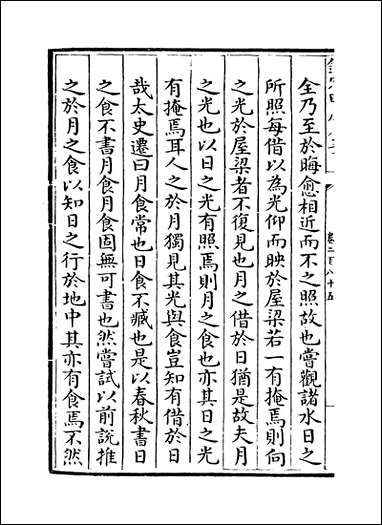 全乃至於晦愈相近而不之照故也嘗觀諸水日之
所照每借以為光仰而映於屋梁若一有掩焉則向
之光於屋梁者不復見也月之借於日猶是故夫月
之光也以日之光有照焉則月之食也亦其日之光
有掩焉耳人之於月獨見其光與食豈知有借於日
哉太史遷曰月食常也日食不臧也是以春秋書日
之食不書月食月食固無可書也然嘗試以前說推
之於月之食以知日之行於地中其亦有食焉不然
卷二百八十五